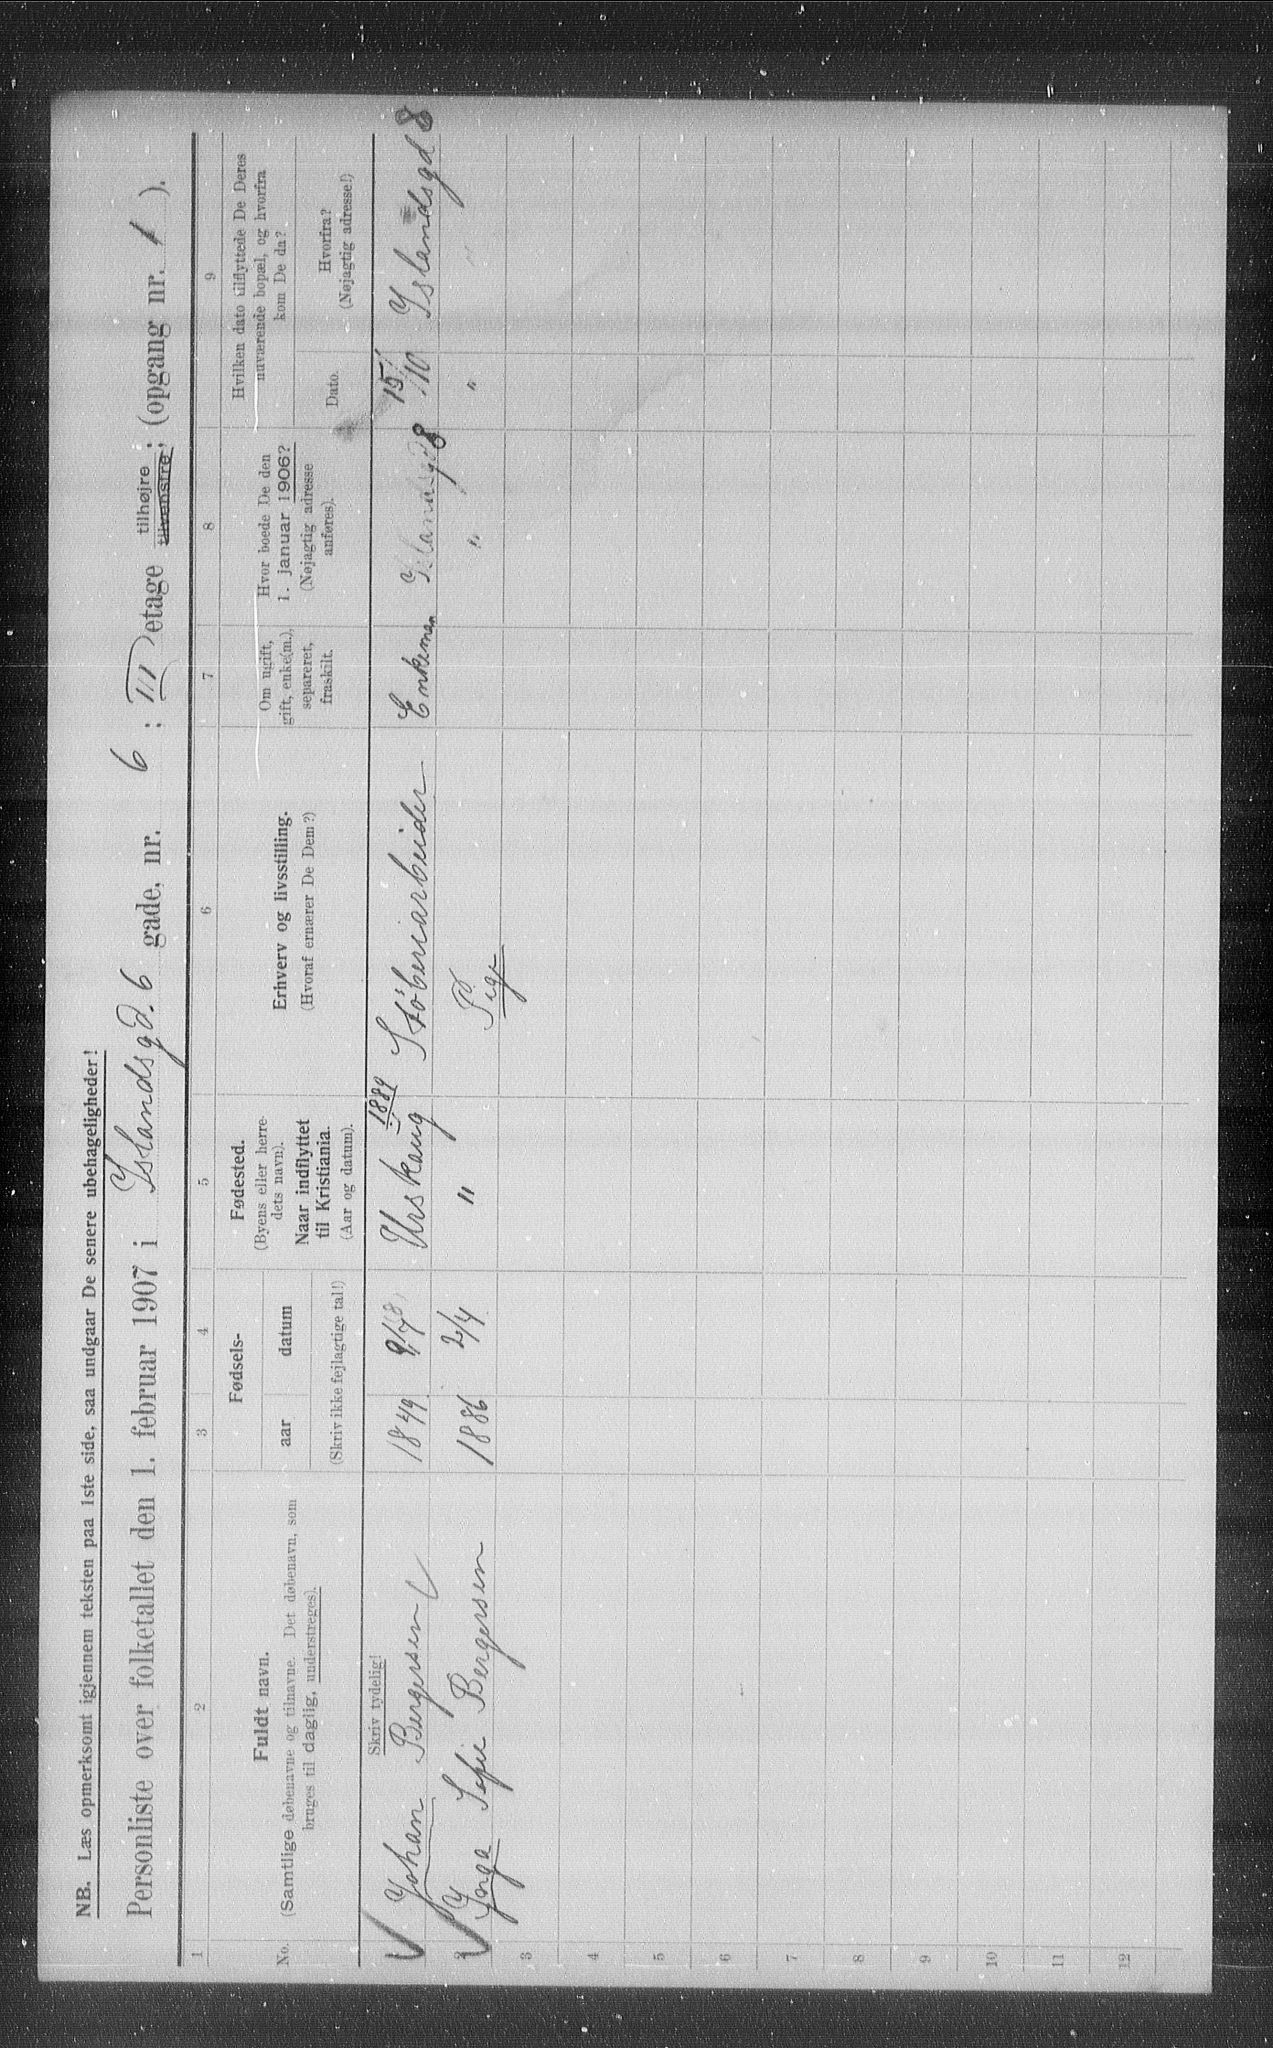 NB. Læs opmerksomt igjennem teksten paa 1ste side, saa undgaar De senere ubehageligheder!
Personliste over folketallet den 1. februar 1907 i Islandsgd. 6 gade, nr. 6 ; III etage tilhøjre tilvenstre; (opgang nr. 1 ).
1 2 3 4 5 6 7 8 9
No.
Fuldt navn.
(Samtlige døbenavne og tilnavne. Det døbenavn, som
bruges til daglig, understreges).
Skriv tydelig!
Fødsels-
aar datum
(Skriv ikke fejlagtige tal!)
Fødested.
(Byens eller herre-
dets navn).
Naar indflyttet
til Kristiania.
(Aar og datum).
Erhverv og livsstilling.
(Hvoraf ernærer De Dem?)
Om ugift,
gift, enke(m.),
separeret,
fraskilt.
Hvor boede De den
1. januar 1906?
(Nøjagtig adresse
anføres).
Hvilken dato tilflyttede De Deres
nuværende bopæl, og hvorfra
kom De da?
Dato.
Hvorfra?
(Nøjagtig adresse!)
Johan Bergersen 1849 Urskaug 1889 Støberiarbeider Enkeman Islandsgd 8 15/10 Islandsgd 8
2 Inga Sofie Bergersen 1886 2/4 " Pige " "
3
4
5
6
7
8
9
10
11
12